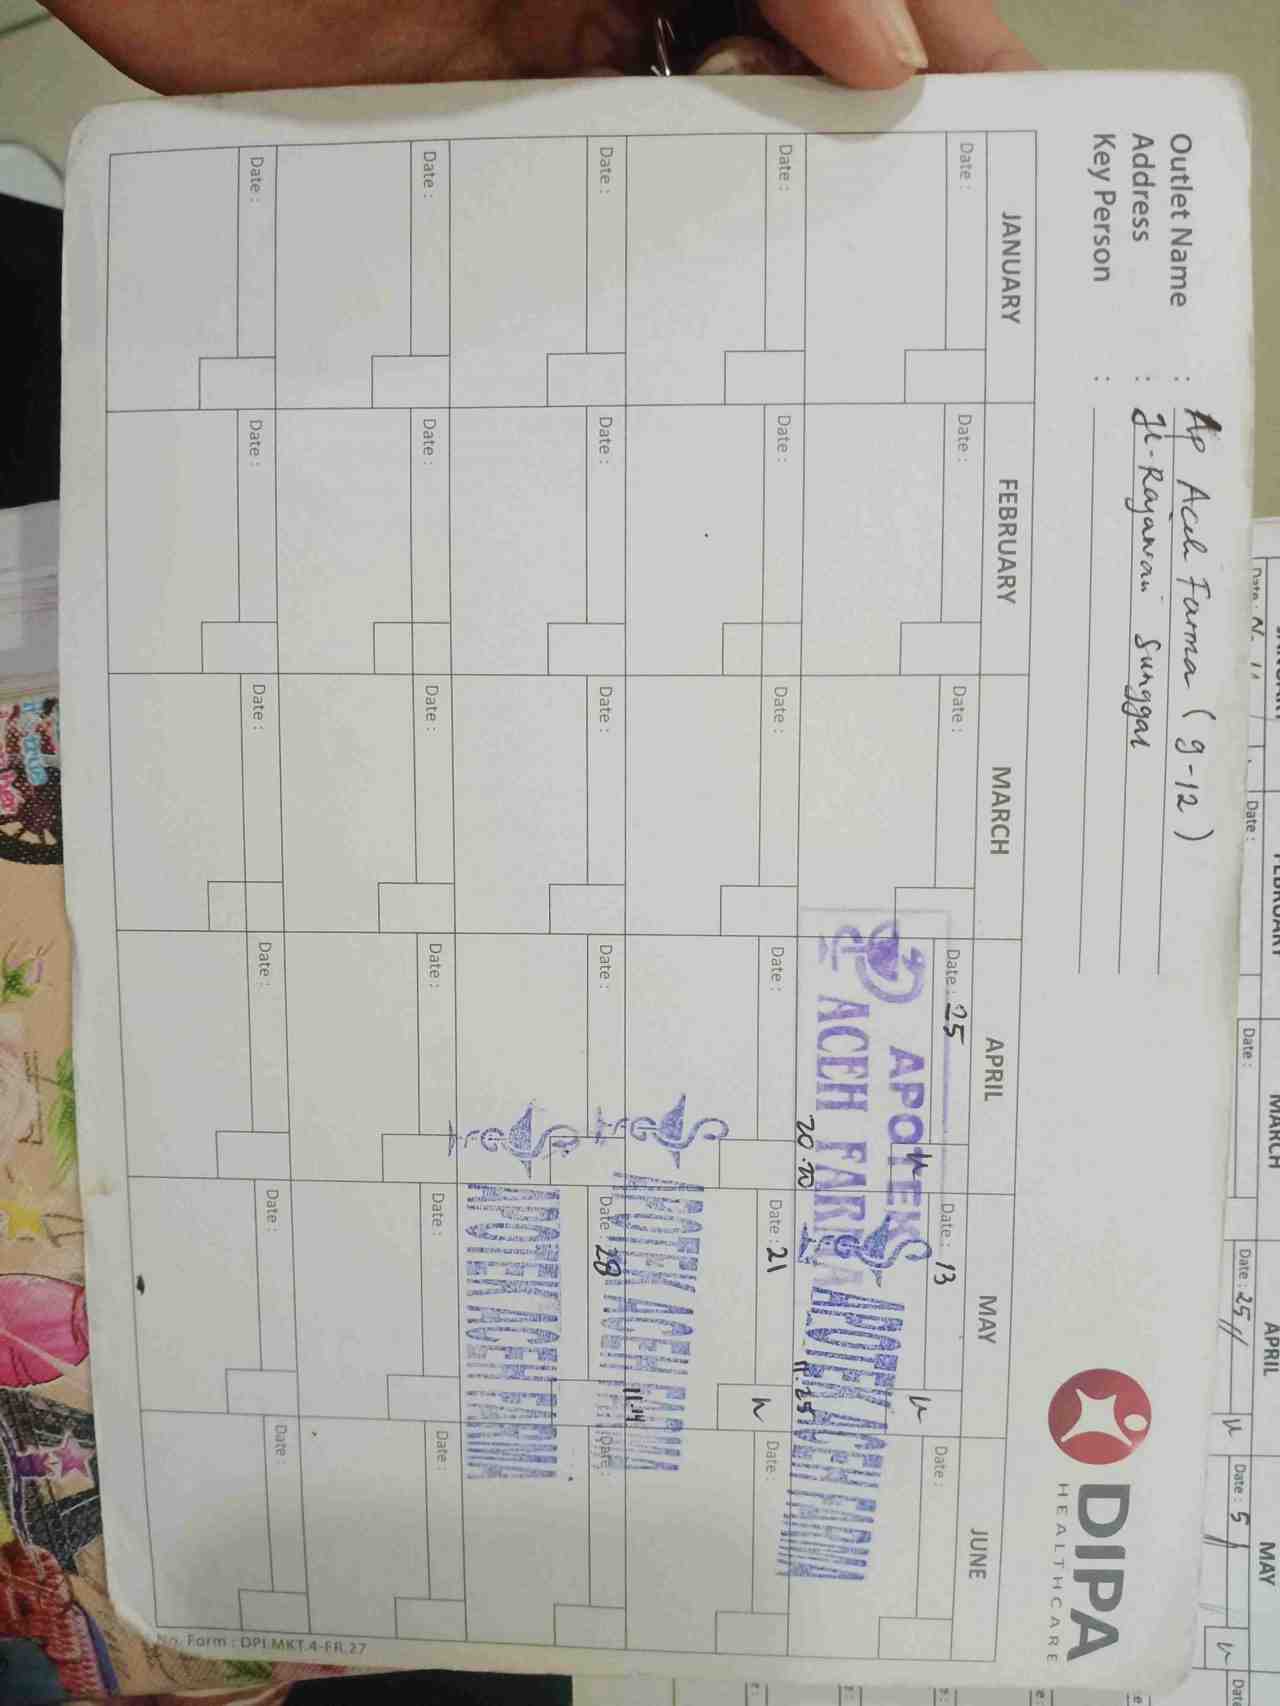 DIPA
HEALTHCARE
Outlet Name : Ap Aceh Farma (9-12)
Address : Jl-Rajawali Sunggal
Key Person :
JANUARY FEBRUARY MARCH APRIL MAY JUNE
Date : Date : Date : Date : 25 Date : 13 Date :
APOTEK
ACEH FARMA
APOTEK ACEH FARMA
20.20 11.25
Date : Date : Date : Date : Date : 21 Date :
APOTEK ACEH FARMA
11.14
Date : Date : Date : Date : Date : 28 Date :
APOTEK ACEH FARMA
Date : Date : Date : Date : Date : Date :
Date : Date : Date : Date : Date : Date :
No. Form : DPI.MKT.4-FR.27
JANUARY FEBRUARY MARCH APRIL MAY
Date : Date : Date : Date : 25 Date : 5 Date